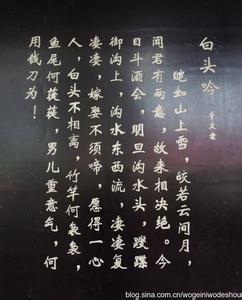 白头吟
卓文君
皑如山上雪,皎若云间月,
闻君有两意,故来相决绝。今
日斗酒会,明旦沟水头,躞蹀
御沟上,沟水东西流,凄凄复
凄凄,嫁娶不须啼,愿得一心
人,白头不相离,竹竿何袅袅,
鱼尾何簁簁,男儿重意气,何
用钱刀为!
blog.sina.com.cn/wogeiniwodeshou